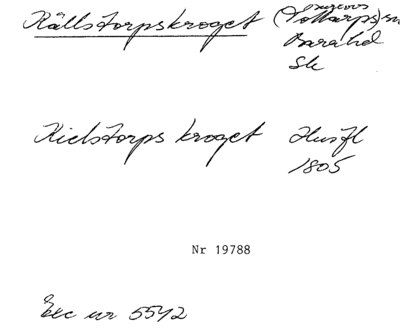 Källstorpskroget (Tottarps) sn
Barahd
Sk
Kielstorps kroget Husfl
1805
Nr 19788
Exc nr 5542